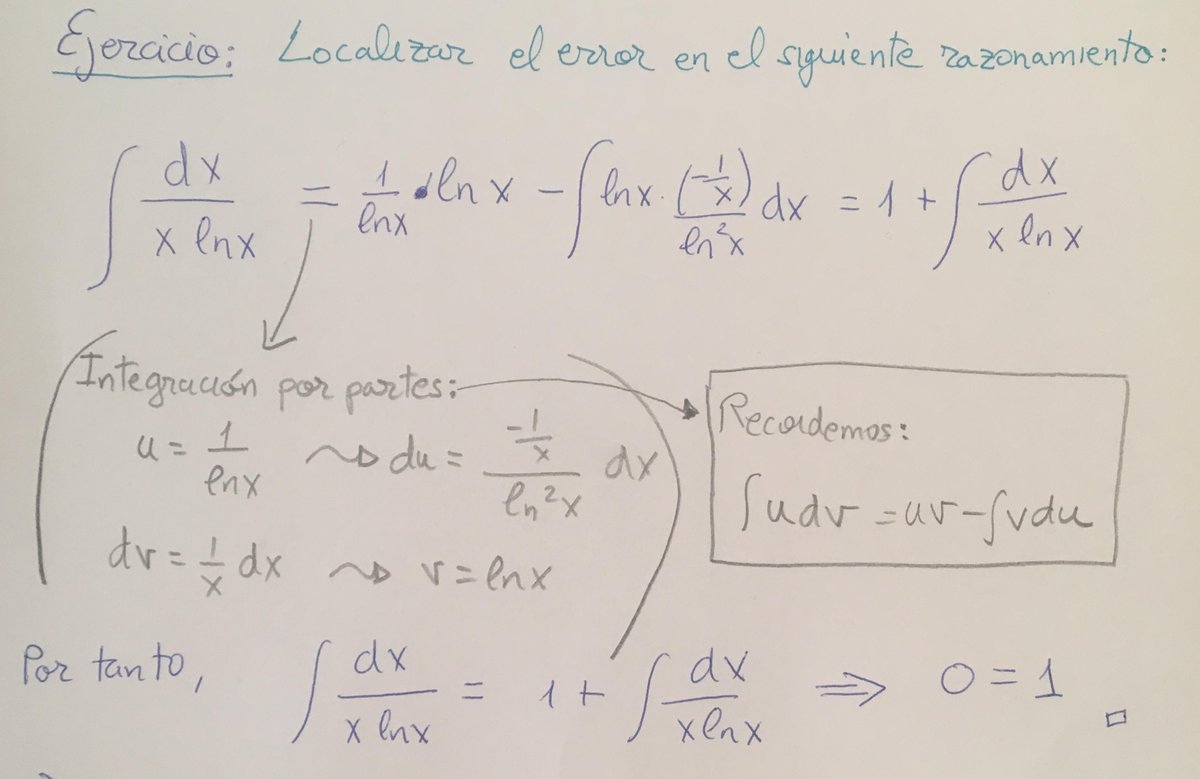 Ejercicio: Localizar el error en el siguiente razonamiento:
∫ dx/(x lnx) = 1/lnx · ln x − ∫ lnx · (−1/x)/ln²x dx = 1 + ∫ dx/(x ln x)
Integración por partes:
u = 1/lnx ⇝ du = (−1/x)/ln²x dx
dv = 1/x dx ⇝ v = lnx
Recordemos:
∫udv = uv − ∫vdu
Por tanto, ∫ dx/(x lnx) = 1 + ∫ dx/(x ln x) ⇒ 0 = 1 □